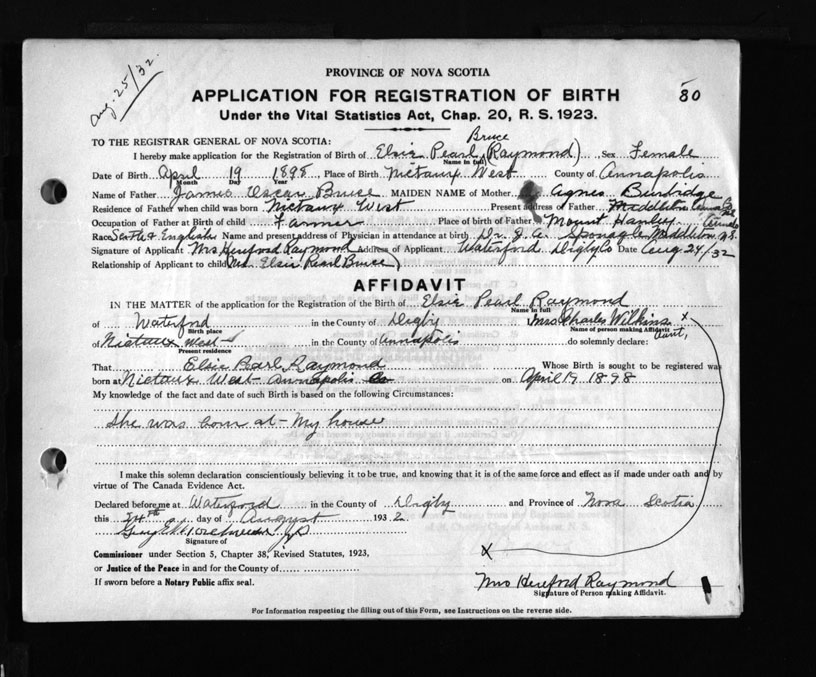 Aug. 25/32
PROVINCE OF NOVA SCOTIA
APPLICATION FOR REGISTRATION OF BIRTH
80
Under the Vital Statistics Act, Chap. 20, R. S. 1923.
TO THE REGISTRAR GENERAL OF NOVA SCOTIA:
Bruce
I hereby make application for the Registration of Birth of Elsie Pearl (Raymond) Sex Female
Name in full
Date of Birth April 19 1898 Place of Birth Nictaux West County of Annapolis
Month Day Year
Name of Father James Oscar Bruce MAIDEN NAME of Mother Agnes Burbidge
Residence of Father when child was born Nictaux West Present address of Father Middleton
Occupation of Father at Birth of child Farmer Place of birth of Father Mount Hanley
Race Scotch & English Name and present address of Physician in attendance at birth Dr. J. A. Sponagle Middleton N.S.
Signature of Applicant Mrs Hereford Raymond Address of Applicant Waterford Digby Co Date Aug 24/32
Relationship of Applicant to child (Mrs Elsie Pearl Bruce)
AFFIDAVIT
IN THE MATTER of the application for the Registration of the Birth of Elsie Pearl Raymond
Name in full
of Waterford in the County of Digby Mrs Charles Wilkins x
Birth place Name of person making Affidavit
of Nictaux West in the County of Annapolis do solemnly declare: Aunt,
Present residence
That Elsie Pearl Raymond Whose Birth is sought to be registered was
born at Nictaux West Annapolis Co on April 19 1898
My knowledge of the fact and date of such Birth is based on the following Circumstances:
She was born at My house
I make this solemn declaration conscientiously believing it to be true, and knowing that it is of the same force and effect as if made under oath and by
virtue of The Canada Evidence Act.
Declared before me at Waterford in the County of Digby and Province of Nova Scotia
this 24th day of August 1932
Signature of
Commissioner under Section 5, Chapter 38, Revised Statutes, 1923,
x
or Justice of the Peace in and for the County of
Mrs Hereford Raymond
If sworn before a Notary Public affix seal.
Signature of Person making Affidavit.
For Information respecting the filling out of this Form, see Instructions on the reverse side.